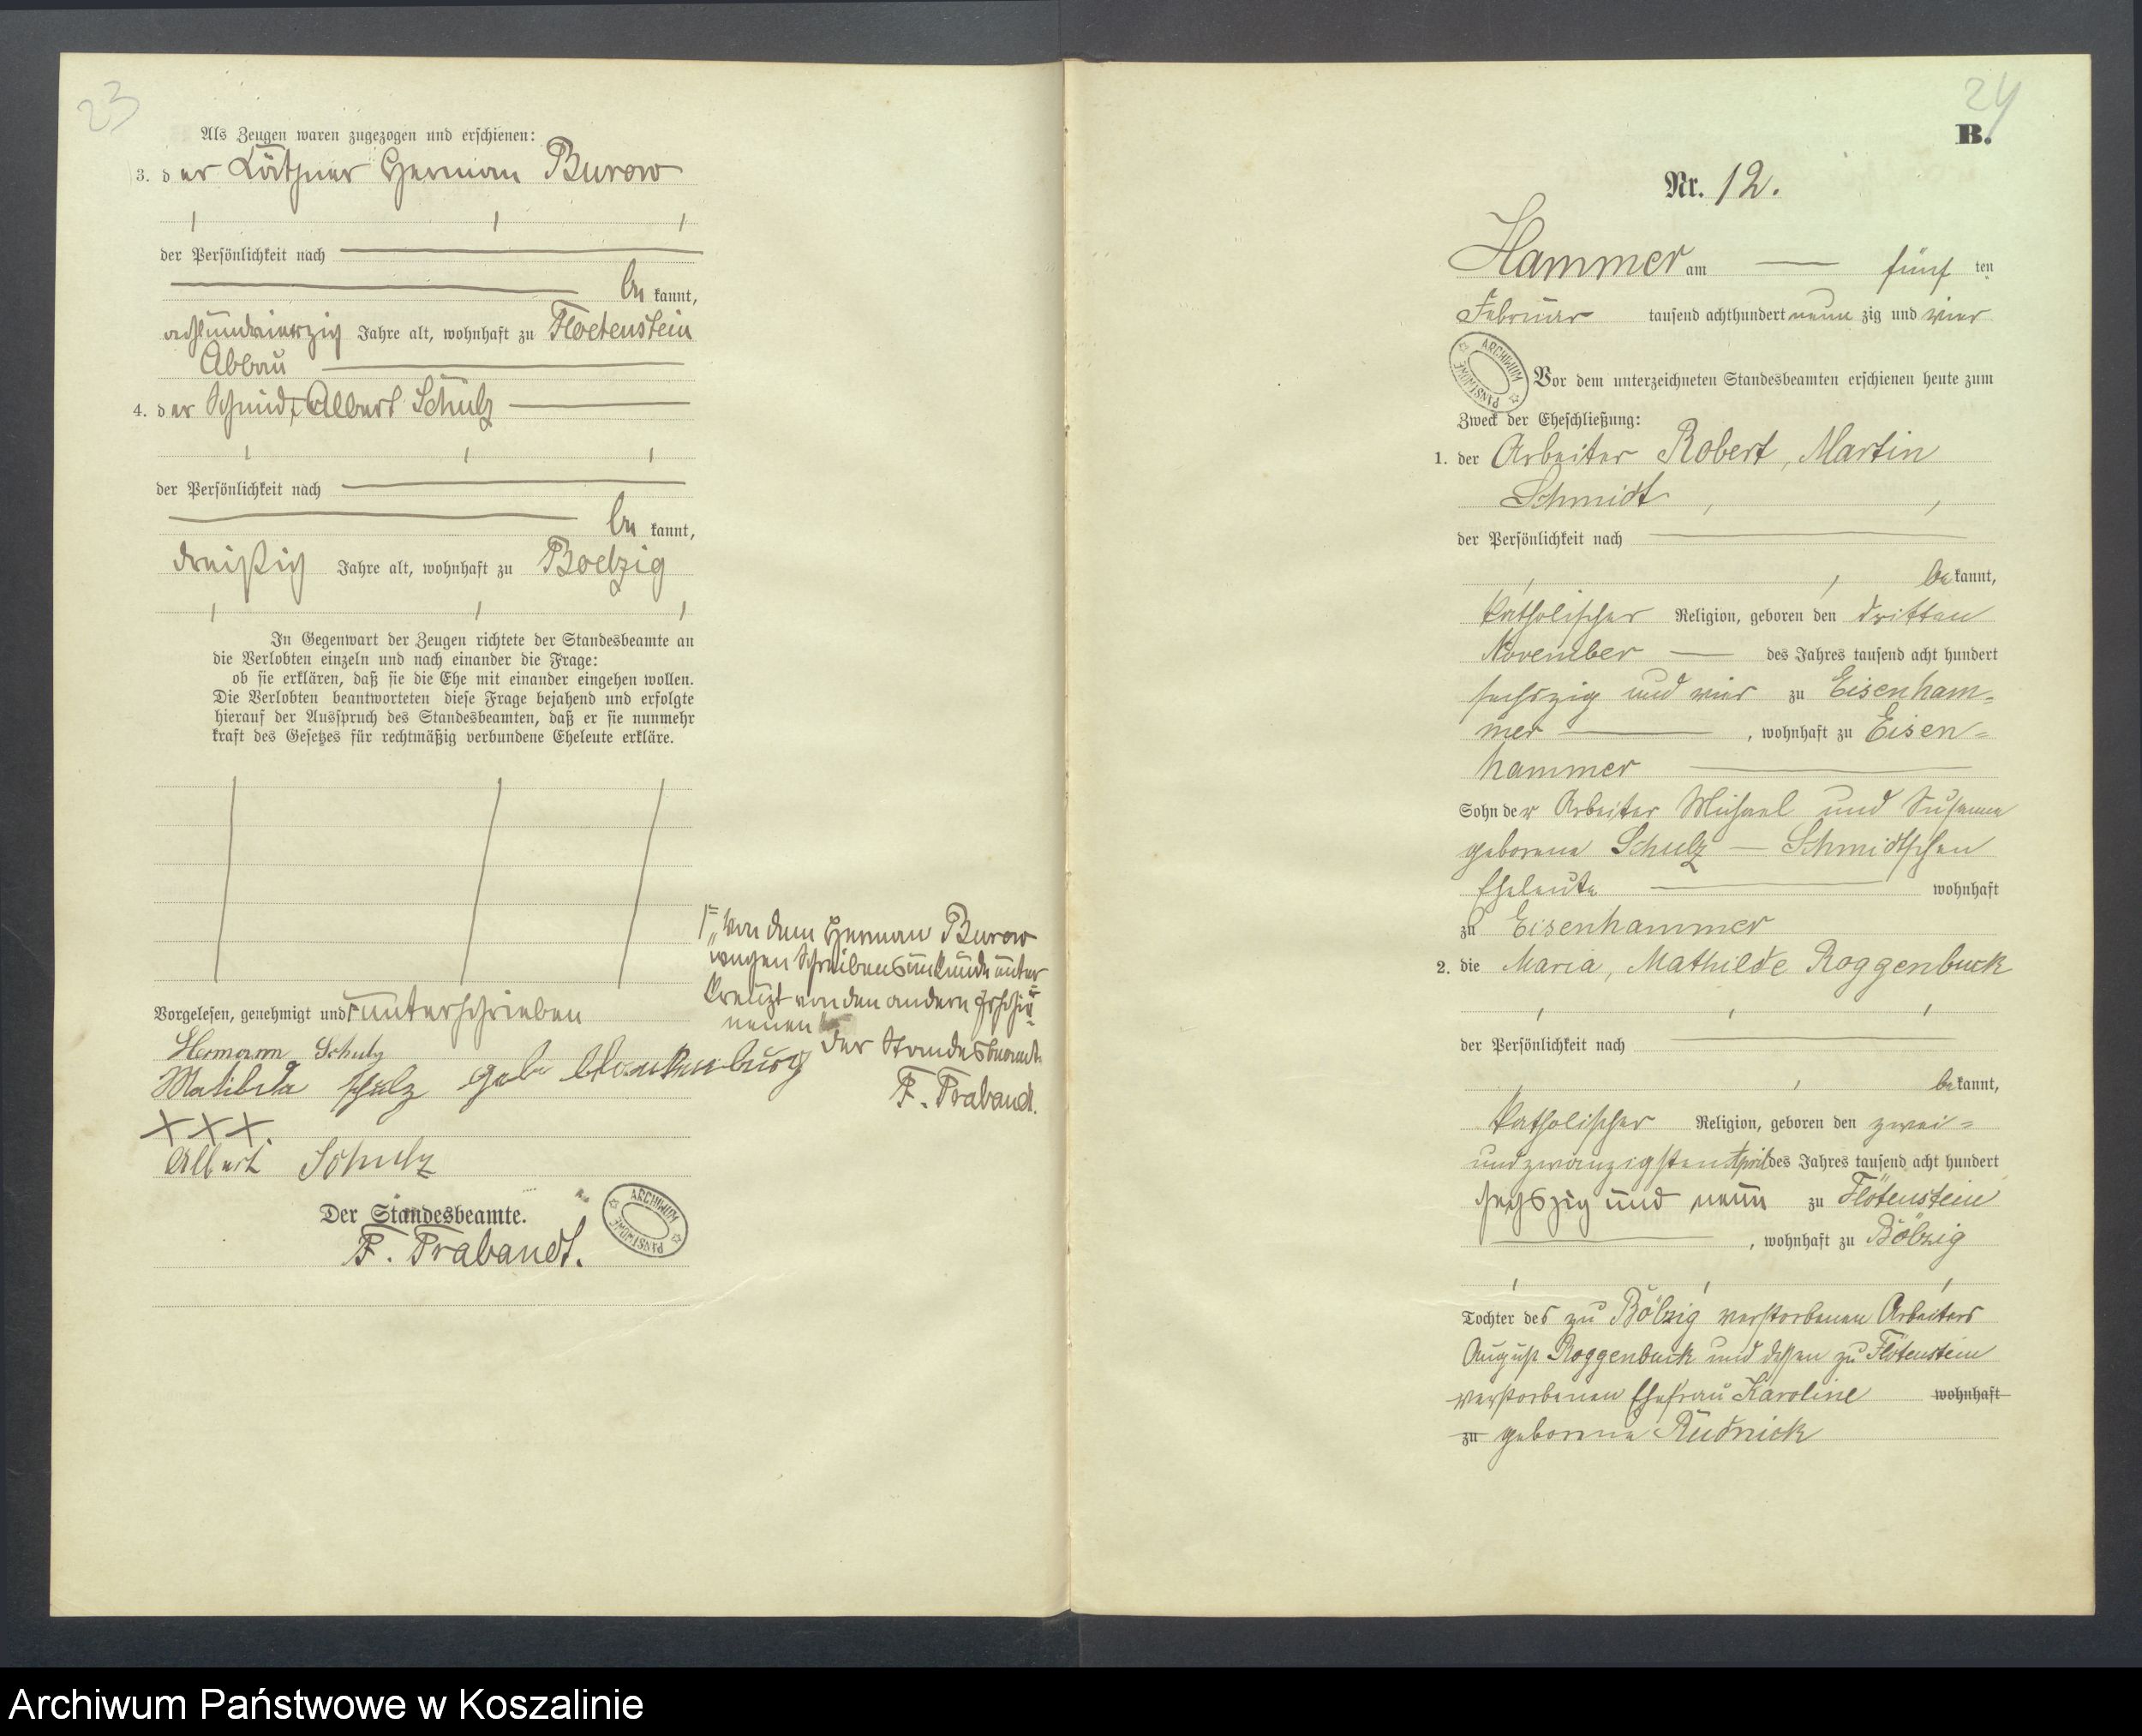 23
Als Zeugen waren zugezogen und erschienen:
3. der Käthner Herman Burow
der Persönlichkeit nach
be kannt,
achtundvierzig Jahre alt, wohnhaft zu Floetenstein
Abbau
4. der Schmidt Albert Schulz
der Persönlichkeit nach
be kannt,
dreißig Jahre alt, wohnhaft zu Boelzig
In Gegenwart der Zeugen richtete der Standesbeamte an
die Verlobten einzeln und nach einander die Frage:
ob sie erklären, daß sie die Ehe mit einander eingehen wollen.
Die Verlobten beantworteten diese Frage bejahend und erfolgte
hierauf der Ausspruch des Standesbeamten, daß er sie nunmehr
kraft des Gesetzes für rechtmäßig verbundene Eheleute erkläre.
„Von dem Herman Burow
wegen Schreibensunkunde unter
kreuzt von den andern Erschie
nenen
der Standesbeamte
F. Trabandt.
Vorgelesen, genehmigt und unterschrieben
Hermann Schulz
Matilda Schulz geb Blankenburg
XXX.
Albert Schulz
Der Standesbeamte.
F. Trabandt.
ARCHIWUM PAŃSTWOWE
24
B.
Nr. 12.
Hammer am fünf ten
Februar tausend achthundert neun zig und vier
ARCHIWUM PAŃSTWOWE
Vor dem unterzeichneten Standesbeamten erschienen heute zum
Zweck der Eheschließung:
1. der Arbeiter Robert, Martin
Schmidt
der Persönlichkeit nach
be kannt,
katholischer Religion, geboren den dritten
November des Jahres tausend acht hundert
sechszig und vier zu Eisenham=
mer , wohnhaft zu Eisen=
hammer
Sohn der Arbeiter Michael und Susanna
geborene Schulz — Schmidtschen
Eheleute wohnhaft
zu Eisenhammer
2. die Maria, Mathilde Roggenbuck
der Persönlichkeit nach
be kannt,
katholischer Religion, geboren den zwei=
undzwanzigsten April des Jahres tausend acht hundert
sechszig und neun zu Flötenstein
, wohnhaft zu Bölzig
Tochter des zu Bölzig verstorbenen Arbeiters
August Roggenbuck und dessen zu Flötenstein
verstorbenen Ehefrau Karoline wohnhaft
zu geborene Rudnick
Archiwum Państwowe w Koszalinie